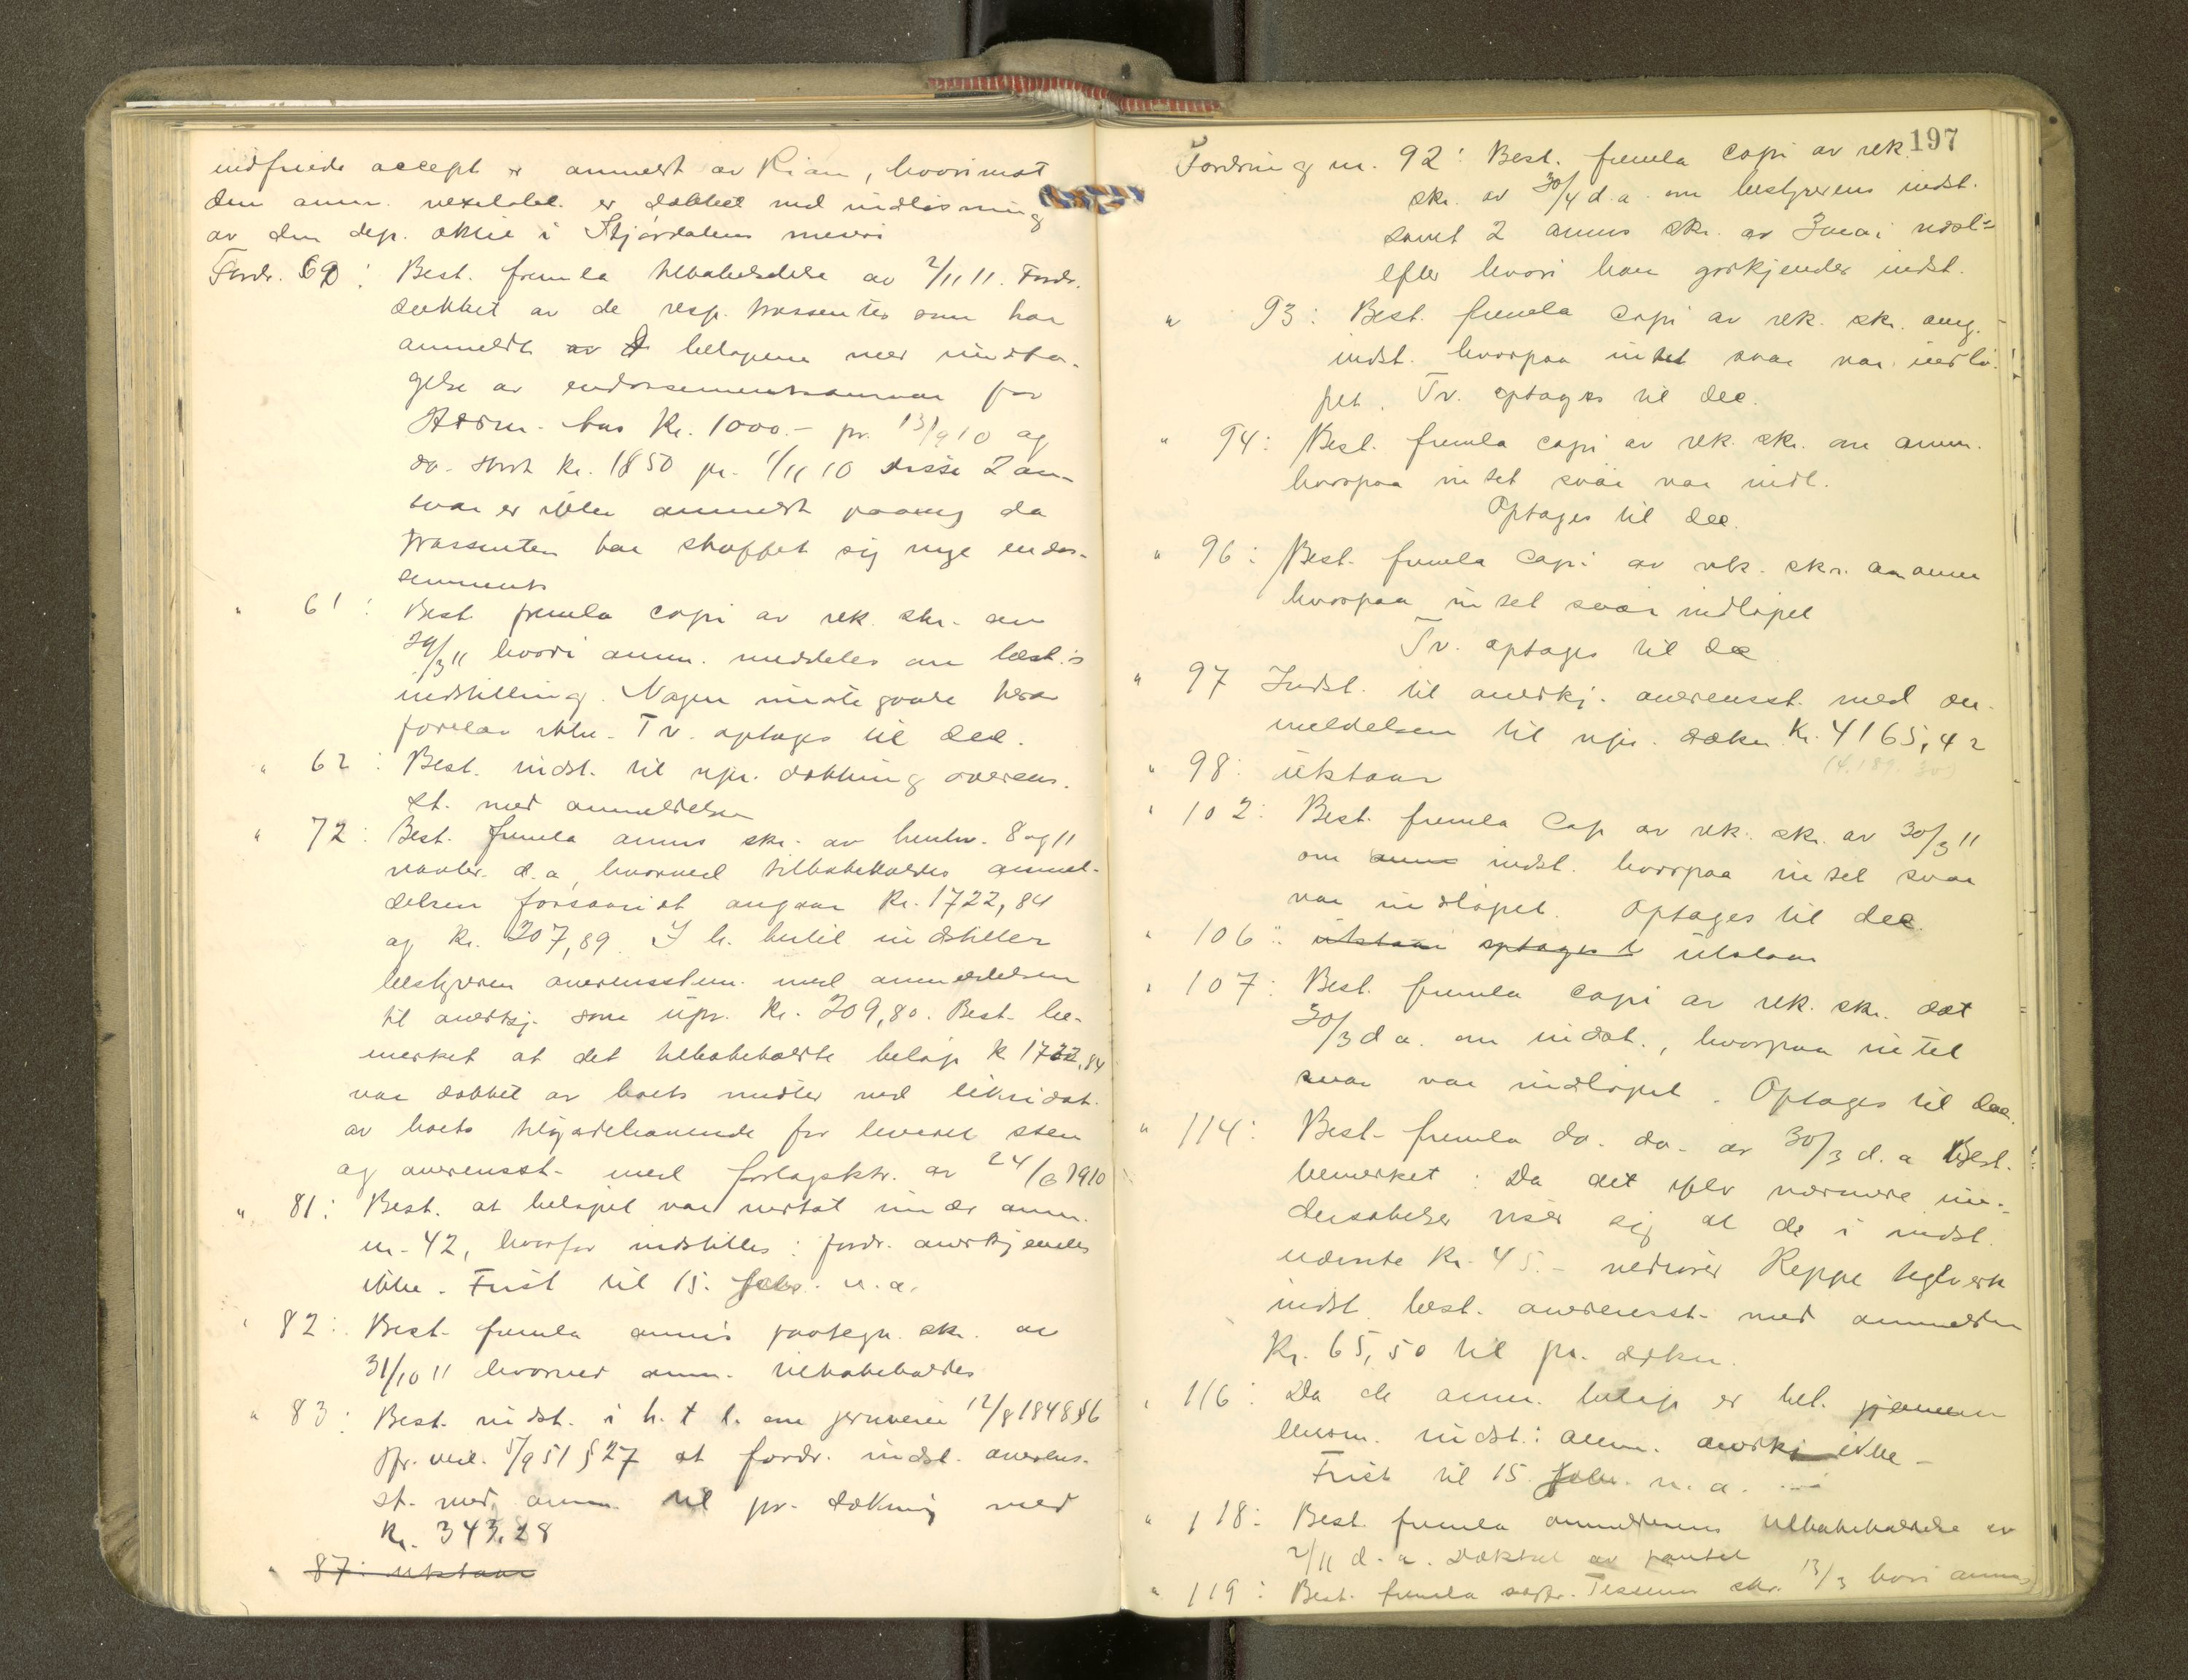 indfriede accept er anmeldt av Rian, hvorimot
den anm. vexelobl. er dækket ved indløsning
av den dep. aktie i Stjørdalens meieri
Fordr. 60: Best. fremla tilbakekaldelse av 2/11 11. Fordr.
dækket av de resp. trassenter som har
anmeldt av beløpene med undta-
gelse av endossementsansvar for
kr. 1000.- pr. 13/9 10 og
do. stort kr. 1850 pr. 1/11 10 disse 2 an-
svar er ikke anmeldt paany da
trassenten har skaffet sig nye endos-
sements
" 61: Best. fremla copi av rek. skr. av
29/3 11 hvori anm. meddeles om best.s
indstilling. Nogen imøtegaaelse herav
forelaa ikke. Tv. optages til dec.
" 62: Best. indst. til upr. dækning overens-
st. med anmeldelsen
" 72: Best. fremla anms skr. av henhv. 8 og 11
novbr. d.a., hvorved tilbakekaldes anmel-
delsen forsaavidt angaar kr. 1722,84
og kr. 207,89. I h. hertil indstiller
bestyreren overensstem. med anmeldelsen
til anerkj. som upr. kr. 209,80. Best. be-
merket at det tilbakekaldte beløp k 1722,84
var dækket av boets midler ved likvidat.
av boets tilgodehavende for leveret sten
og overensst. med forlagsktr. av 24/6 1910
" 81: Best. at beløpet var medtat under anm.
nr. 42, hvorfor indstilles: fordr. anerkjendes
ikke. Frist til 15. febr. n.a.
" 82: Best. fremla anm's paategn. skr. av
31/10 11 hvorved anm. tilbakekaldes
" 83: Best. indst. i h. t l. om 12/8 1848 §6
jfr. ved. 5/9 51 §27 at fordr. indst. overens-
st. med anm. til pr. dækning med
kr. 343.28
" 87: utstaar
197
Fordring nr. 92: Best. fremla copi av rek.
skr. av 30/4 d.a. om bestyrerens indst.
samt 2 anms skr. av 3 mai
efter hvori han godkjender indst.
" 93: Best. fremla copi av rek. skr. ang.
indst. hvorpaa intet svar var indlø-
pet. Tv. optages til dec.
" 94: Best. fremla copi av rek. skr. om anm.
hvorpaa intet svar var indl.
Optages til dec.
" 96: Best. fremla copi av rek. skr. om anm
hvorpaa intet svar indløpet
Tv. optages til dec
" 97 Indst. til anerkj. overensst. med an-
meldelsen til upr. dækn. Kr. 4165,42
(4.189.30)
" 98: utstaar
" 102: Best. fremla Cop av rek. skr. av 30/3 11
om anms indst. hvorpaa intet svar
var indløpet. Optages til dec.
" 106: utstaar optages t utstaar
" 107: Best. fremla copi av rek. skr. dat
30/3 d a. om indst., hvorpaa intet
svar var indløpet. Optages til dec.
" 114: Best. fremla do. do. av 30/3 d.a Best.
bemerket: Da det efter nærmere un-
dersøkelser viser sig at de i indst.
nævnte kr. 45.- vedrører Reppe teglverk
indst. best. overensst. med anmeldelsen
Kr. 65,50 til pr. dækn.
" 116: Da de anm. beløp er bet. gjennem
indst: anm. anerkj ikke -
Frist til 15. febr. n. a.
" 118: Best. fremla anmelderens tilbakekaldelse av
2/11 d. a. Dækket av pantet
" 119: Best. fremla Tessem skr. 13/3 hvori anms